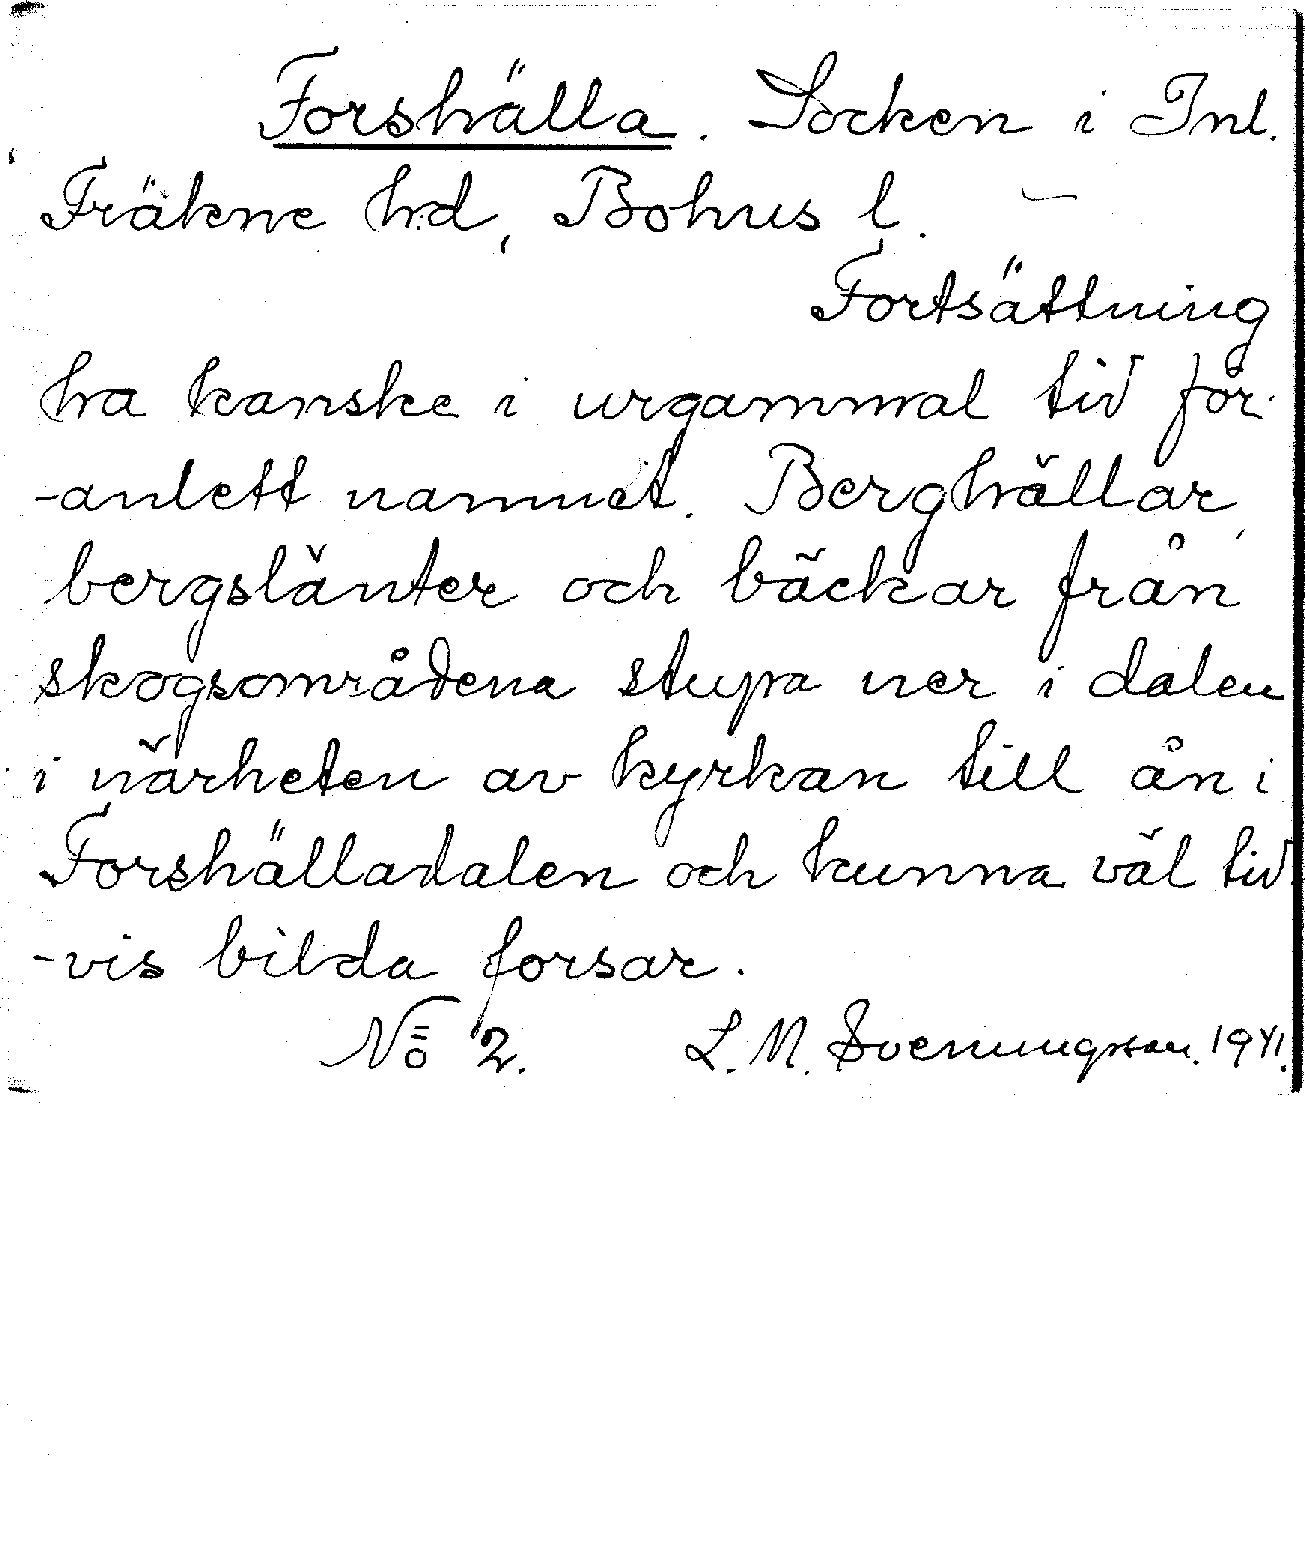 Forshälla. Socken i Inl.
Fräkne hd, Bohus l.
Fortsättning
ha kanske i urgammal tid för-
-anlett namnet. Berghällar,
bergslänter och bäckar från
skogsområdena stupa ner i dalen
i närheten av kyrkan till ån i
Forshälladalen och kunna väl tid
-vis bilda forsar.
No 2. L. M. Svenungsson. 1941.